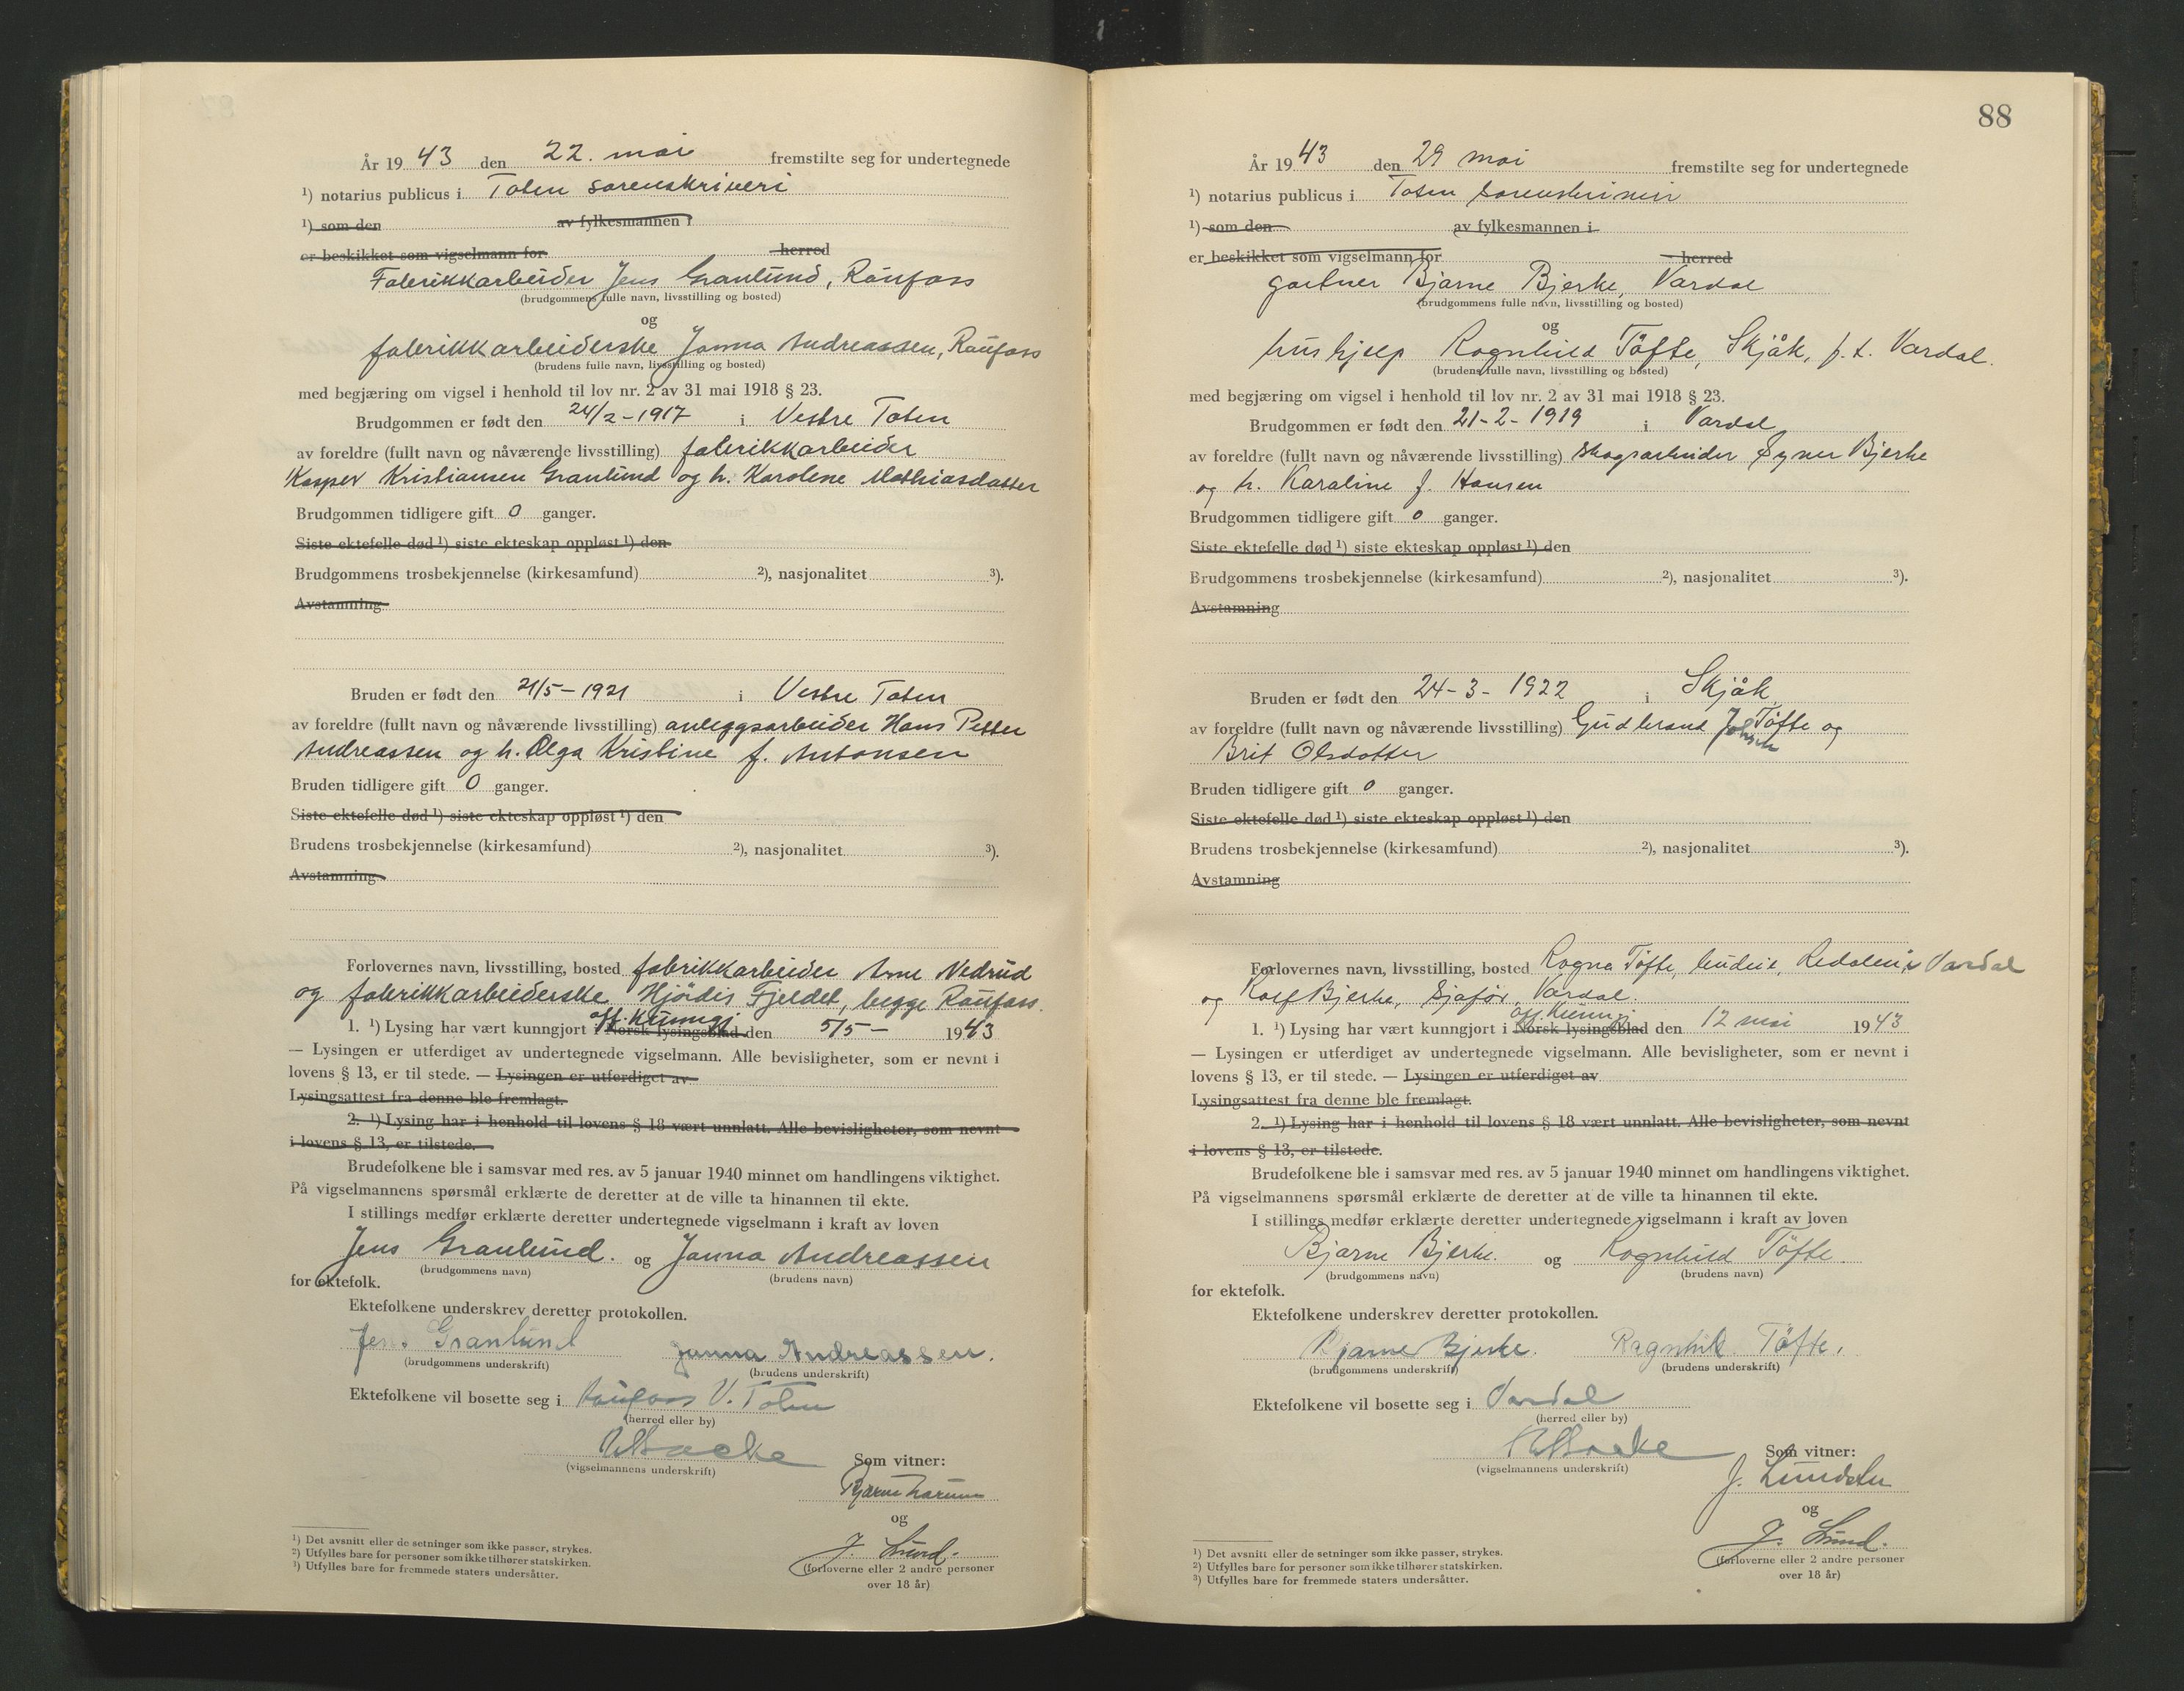 År 1943 den 22. mai fremstilte seg for undertegnede
¹) notarius publicus i Toten sorenskriveri
¹) som den av fylkesmannen i
er beskikket som vigselmann for herred
Fabrikkarbeider Jens Granlund, Raufoss
(brudgommens fulle navn, livsstilling og bosted)
og
fabrikkarbeiderske Janna Andreassen, Raufoss
(brudens fulle navn, livsstilling og bosted)
med begjæring om vigsel i henhold til lov nr. 2 av 31 mai 1918 § 23.
Brudgommen er født den 24/2-1917 i Vestre Toten
av foreldre (fullt navn og nåværende livsstilling) fabrikkarbeider
Kasper Kristiansen Granlund og h. Karolene Mathiasdatter
Brudgommen tidligere gift 0 ganger.
Siste ektefelle død ¹) siste ekteskap oppløst ¹) den
Brudgommens trosbekjennelse (kirkesamfund) ²), nasjonalitet ³).
Avstamning
Bruden er født den 21/5-1921 i Vestre Toten
av foreldre (fullt navn og nåværende livsstilling) anleggsarbeider Hans Petter
Andreassen og h. Olga Kristine f. Antonsen
Bruden tidligere gift 0 ganger.
Siste ektefelle død ¹) siste ekteskap oppløst ¹) den
Brudens trosbekjennelse (kirkesamfund) ²), nasjonalitet ³).
Avstamning
Forlovernes navn, livsstilling, bosted fabrikkarbeider Arne Nedrud
og fabrikkarbeiderske Hjördis Fjeldet, begge Raufoss.
off. kunngj
1. ¹) Lysing har vært kunngjort i Norsk lysingsblad den 5/5- 1943
— Lysingen er utferdiget av undertegnede vigselmann. Alle bevisligheter, som er nevnt i
lovens § 13, er til stede. — Lysingen er utferdiget av
Lysingsattest fra denne ble fremlagt.
2. ¹) Lysing har i henhold til lovens § 18 vært unnlatt. Alle bevisligheter, som nevnt
i lovens § 13, er tilstede.
Brudefolkene ble i samsvar med res. av 5 januar 1940 minnet om handlingens viktighet.
På vigselmannens spørsmål erklærte de deretter at de ville ta hinannen til ekte.
I stillings medfør erklærte deretter undertegnede vigselmann i kraft av loven
Jens Granlund. og Janna Andreassen
(brudgommens navn) (brudens navn)
for ektefolk.
Ektefolkene underskrev deretter protokollen.
Jens Granlund Janna Andreassen.
(brudgommens underskrift) (brudens underskrift)
Ektefolkene vil bosette seg i Raufoss V. Toten
(herred eller by)
(vigselmannens underskrift) Som vitner:
Bjarne Larum
og
J. Lund.
(forloverne eller 2 andre personer
over 18 år)
¹) Det avsnitt eller de setninger som ikke passer, strykes.
²) Utfylles bare for personer som ikke tilhører statskirken.
³) Utfylles bare for fremmede staters undersåtter.
88
År 1943 den 29 mai fremstilte seg for undertegnede
¹) notarius publicus i Toten sorenskriveri
¹) som den av fylkesmannen i
er beskikket som vigselmann for herred
gartner Bjarne Bjerke, Vardal
(brudgommens fulle navn, livsstilling og bosted)
og
hushjelp Ragnhild Töfte, Skjåk, p.t. Vardal.
(brudens fulle navn, livsstilling og bosted)
med begjæring om vigsel i henhold til lov nr. 2 av 31 mai 1918 § 23.
Brudgommen er født den 21-2-1919 i Vardal
av foreldre (fullt navn og nåværende livsstilling) skogsarbeider Syver Bjerke
og h. Karaline f. Hansen
Brudgommen tidligere gift 0 ganger.
Siste ektefelle død ¹) siste ekteskap oppløst ¹) den
Brudgommens trosbekjennelse (kirkesamfund) ²), nasjonalitet ³).
Avstamning
Bruden er født den 24-3-1922 i Skjåk
av foreldre (fullt navn og nåværende livsstilling) Gudbrand Töfte og
Brit Olsdotter
Bruden tidligere gift 0 ganger.
Siste ektefelle død ¹) siste ekteskap oppløst ¹) den
Brudens trosbekjennelse (kirkesamfund) ²), nasjonalitet ³).
Avstamning
Forlovernes navn, livsstilling, bosted Ragna Töfte, budeie, Redalen i Vardal
og Rolf Bjerke, Sjåför, Vardal.
off. kunngj
1. ¹) Lysing har vært kunngjort i Norsk lysingsblad den 12 mai 1943
— Lysingen er utferdiget av undertegnede vigselmann. Alle bevisligheter, som er nevnt i
lovens § 13, er til stede. — Lysingen er utferdiget av
Lysingsattest fra denne ble fremlagt.
2. ¹) Lysing har i henhold til lovens § 18 vært unnlatt. Alle bevisligheter, som nevnt
i lovens § 13, er tilstede.
Brudefolkene ble i samsvar med res. av 5 januar 1940 minnet om handlingens viktighet.
På vigselmannens spørsmål erklærte de deretter at de ville ta hinannen til ekte.
I stillings medfør erklærte deretter undertegnede vigselmann i kraft av loven
Bjarne Bjerke. og Ragnhild Töfte.
(brudgommens navn) (brudens navn)
for ektefolk.
Ektefolkene underskrev deretter protokollen.
Bjarne Bjerke. Ragnhild Töfte.
(brudgommens underskrift) (brudens underskrift)
Ektefolkene vil bosette seg i Vardal
(herred eller by)
(vigselmannens underskrift) Som vitner:
J. Lundsten
og
J. Lund.
(forloverne eller 2 andre personer
over 18 år)
¹) Det avsnitt eller de setninger som ikke passer, strykes.
²) Utfylles bare for personer som ikke tilhører statskirken.
³) Utfylles bare for fremmede staters undersåtter.